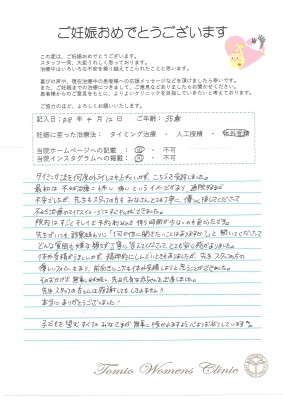 ご妊娠おめでとうございます
この度は、ご妊娠おめでとうございます。
スタッフ一同、大変うれしく思っております。
治療中はいろいろな不安を乗り越えてこられたことと思います。
喜びの声や、現在治療中の患者様への応援メッセージなどを頂けましたら幸いです。
また、ご妊娠までの治療につきまして、ご意見などありましたらお聞かせください。
患者様からのご意見をもとに、よりよいクリニックを目指していきたいと考えております。
ご協力のほど、よろしくお願いいたします。
記入日: 年 4 月 12 日 ご年齢: 35歳
妊娠に至った治療法: タイミング治療 ・ 人工授精 ・ 体外受精
当院ホームページへの記載: 可 ・ 不可
当院インスタグラムへの掲載: 可 ・ 不可
タイミング法を何度かトライしても上手くいかず、こちらを受診しました。
最初は不妊治療
不安でしたが、先生もスタッフの方もみなさんとても丁寧に、優しく接してくださって
不妊治療のマイナスイメージはすぐになくなりました。
院内はすごくキレイで予約もあり待ち時間が少ないのも良かったです。
先生がいつも診察終わりに「何か他に聞きたいことはありますか?」と聞いてくださって
どんな質問も嫌な顔せず丁寧に答えてくださって、とても安心感がありました。
体外受精がうまくいかず、精神的にしんどいときもありましたが、先生やスタッフの方の
優しいフォローもあり、前向きに
そのおかげで無事に妊娠
先生、スタッフの方々には感謝してもしきれません!
本当にありがとうございました!
子どもを望むすべてのみなさまが無事に授かれますよう心よりお祈りしています
Tomio Womens Clinic